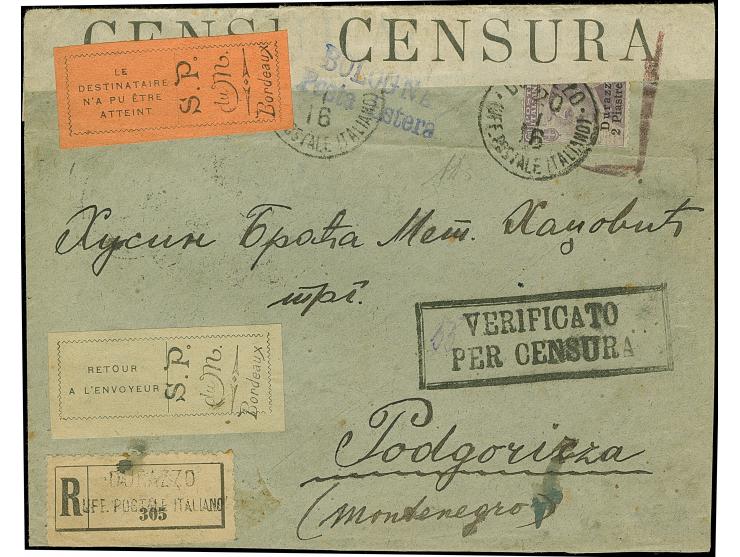 CENSU CENSURA
LE
DESTINATAIRE
N'A PU ÊTRE
ATTEINT
S.P.
du M.
Bordeaux
BOLOGNE
Posta Estera
16
POSTALE ITALIANO)
DURAZZO
16
(UFF. POSTALE ITALIANO)
Durazzo
2 Piastre
Хусин Браћа Мет. Хаџовић
трг.
VERIFICATO
PER CENSURA
RETOUR
A L'ENVOYEUR
S.P.
du M.
Bordeaux
Podgorizza
(Montenegro)
R
DURAZZO
UFF. POSTALE ITALIANO
305